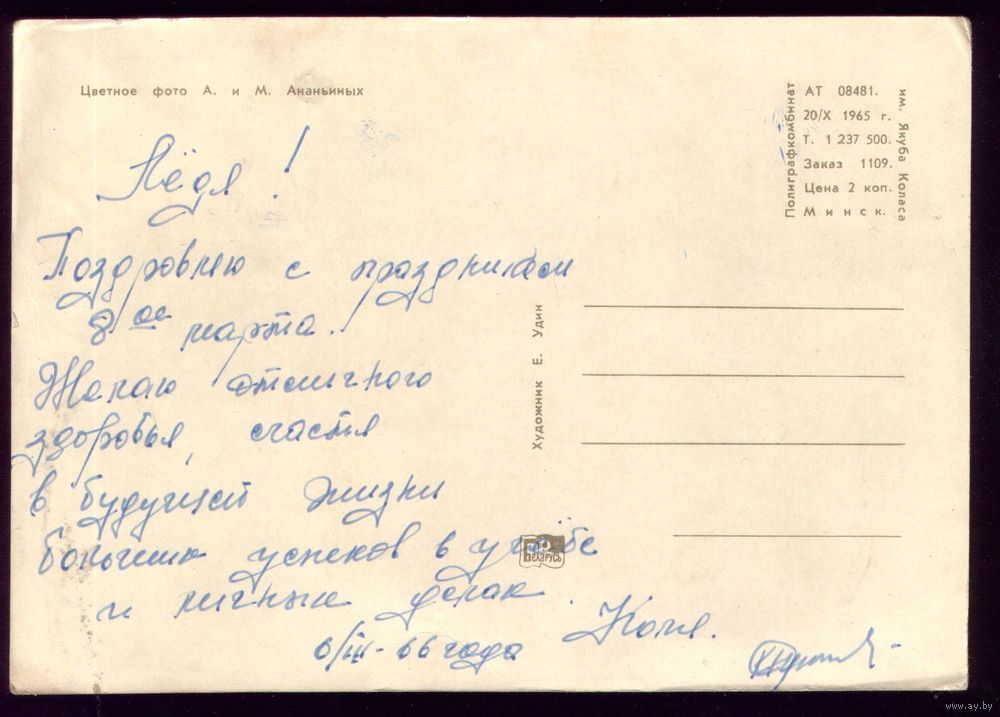 Цветное фото А. и М. Ананьиных
Лёдя!
Поздровлею с праздником
8ое марта.
Желаю отличного
здоровья, счастья
в будущей жизни
больших успехов в учёбе
и личных делах.
6/III-66 года
Коля.
Художник Е. Удин
Беларусь
Полиграфкомбинат
им. Якуба Коласа
АТ 08481.
20/X 1965 г.
Т. 1 237 500.
Заказ 1109.
Цена 2 коп.
Минск.
www.ay.by